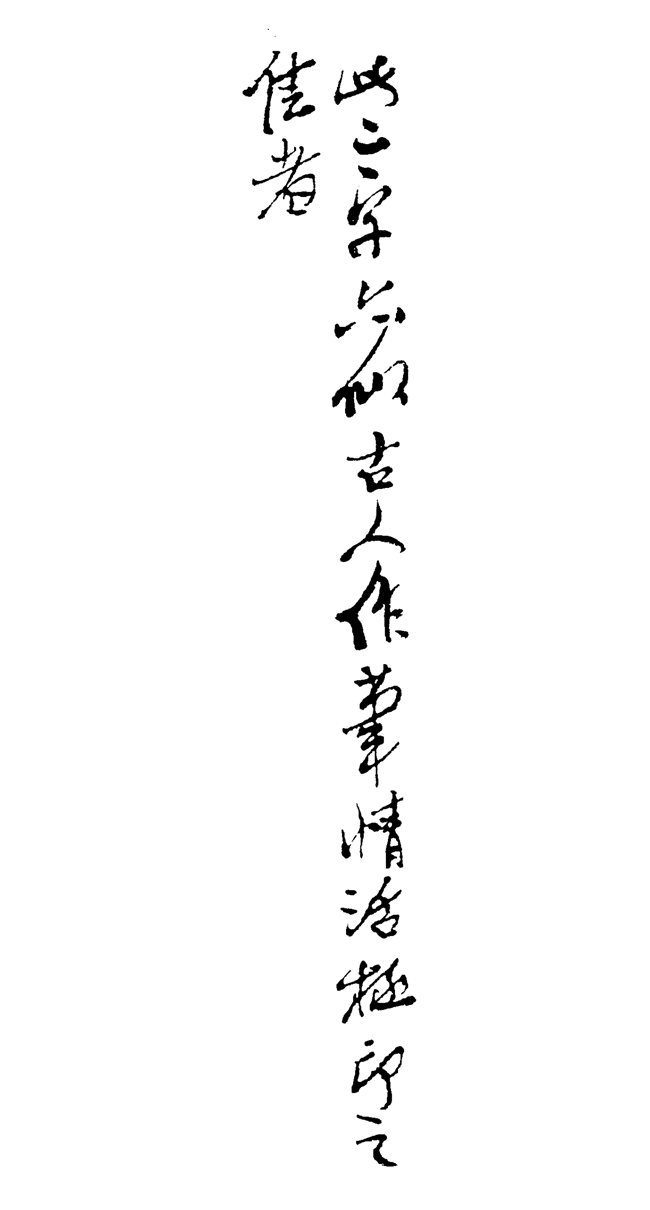 此二字亦似古人作筆情活極印之
佳者